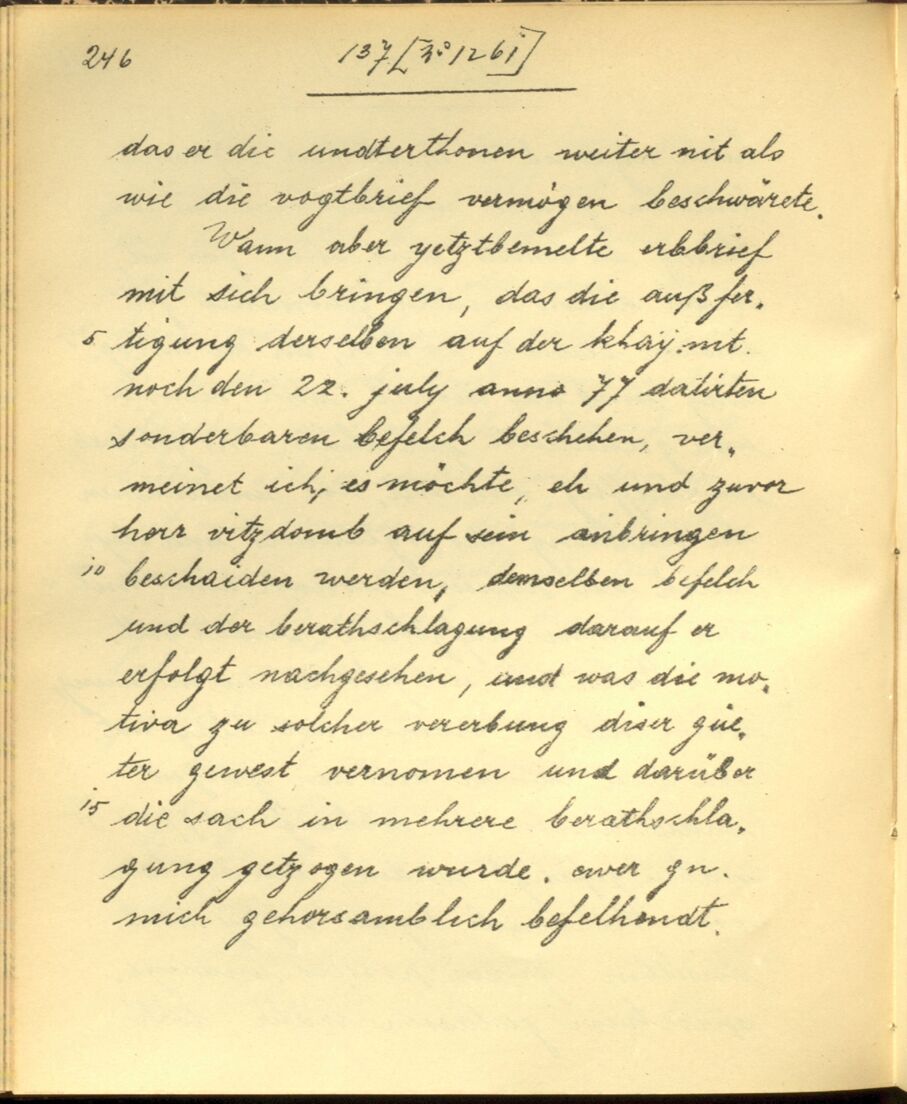 246 137 [3:o 1261]
das er die undterthonen weiter nit als
wie die vogtbrief vermögen beschwärete.
Wann aber yetztbemelte erbbrief
mit sich bringen, das die außfer„
5 tigung derselben auf der khay. mt.
noch den 22. july anno 77 datirten
sonderbaren befelch beschehen, ver„
meinet ich, es möchte, eh und zuvor
herr vitzdomb auf sein anbringen
10 beschaiden werden, demselben befelch
und der berathschlagung darauf er
erfolgt nachgesehen, und was die mo„
tiva zu solcher vererbung diser güe„
ter gewest vernomen und darüber
15 die sach in mehrere berathschla„
gung getzogen wurde. ewer gn.
mich gehorsamblich befelhendt.